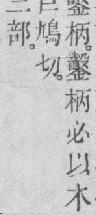 鑿柄。鑿柄必以木
巨鳩切。
三部。